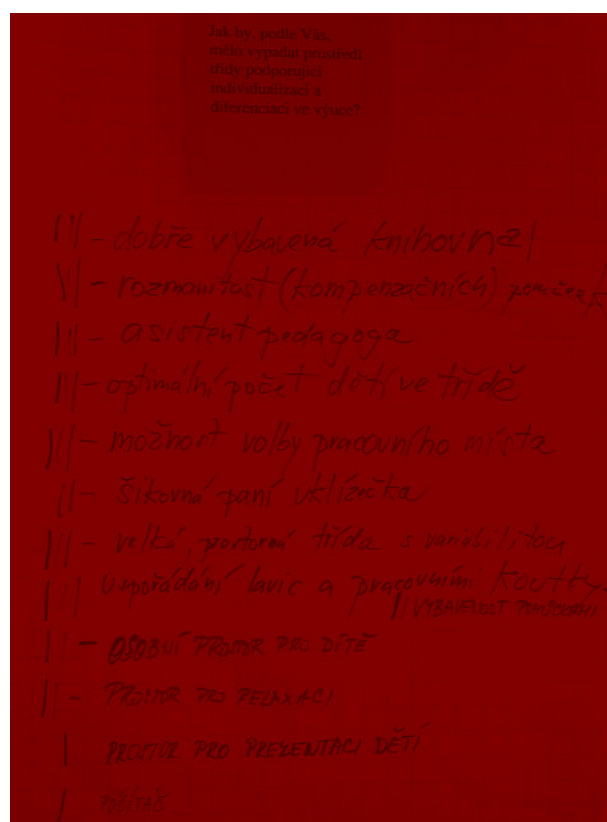 Jak by, podle Vás,
mělo vypadat prostředí
třídy podporující
individualizaci a
diferenciaci ve výuce?
||| - dobře vybavená knihovna |
||| - rozmanitost (kompenzačních) pomůcek
||| - asistent pedagoga
||| - optimální počet dětí ve třídě
||| - možnost volby pracovního místa
|| - šikovná paní uklízečka
||| - velká, prostorná třída s variabilitou
||| uspořádání lavic a pracovními koutky
|| VYBAVENOST POMŮCKAMI
|| - OSOBNÍ PROSTOR PRO DÍTĚ
|| - PROSTOR PRO RELAXACI
| PROSTOR PRO PREZENTACI DĚTÍ
| POČÍTAČ